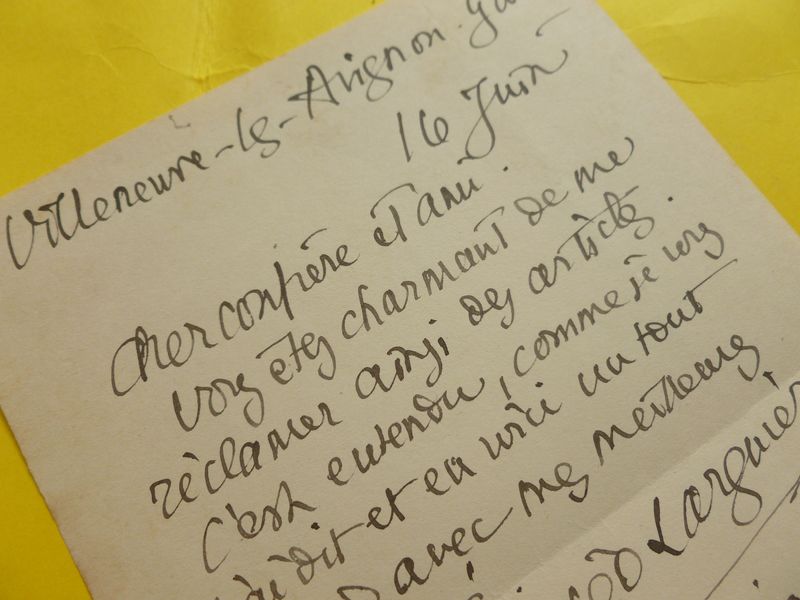 Villeneuve-les-Avignon. Ga
16 Juin
Cher confrère et ami.
vous êtes charmant de me
réclamer ainsi des articles.
C'est entendu, comme je vous
l'ai dit et en voici un tout
avec mes meilleurs
Larguier